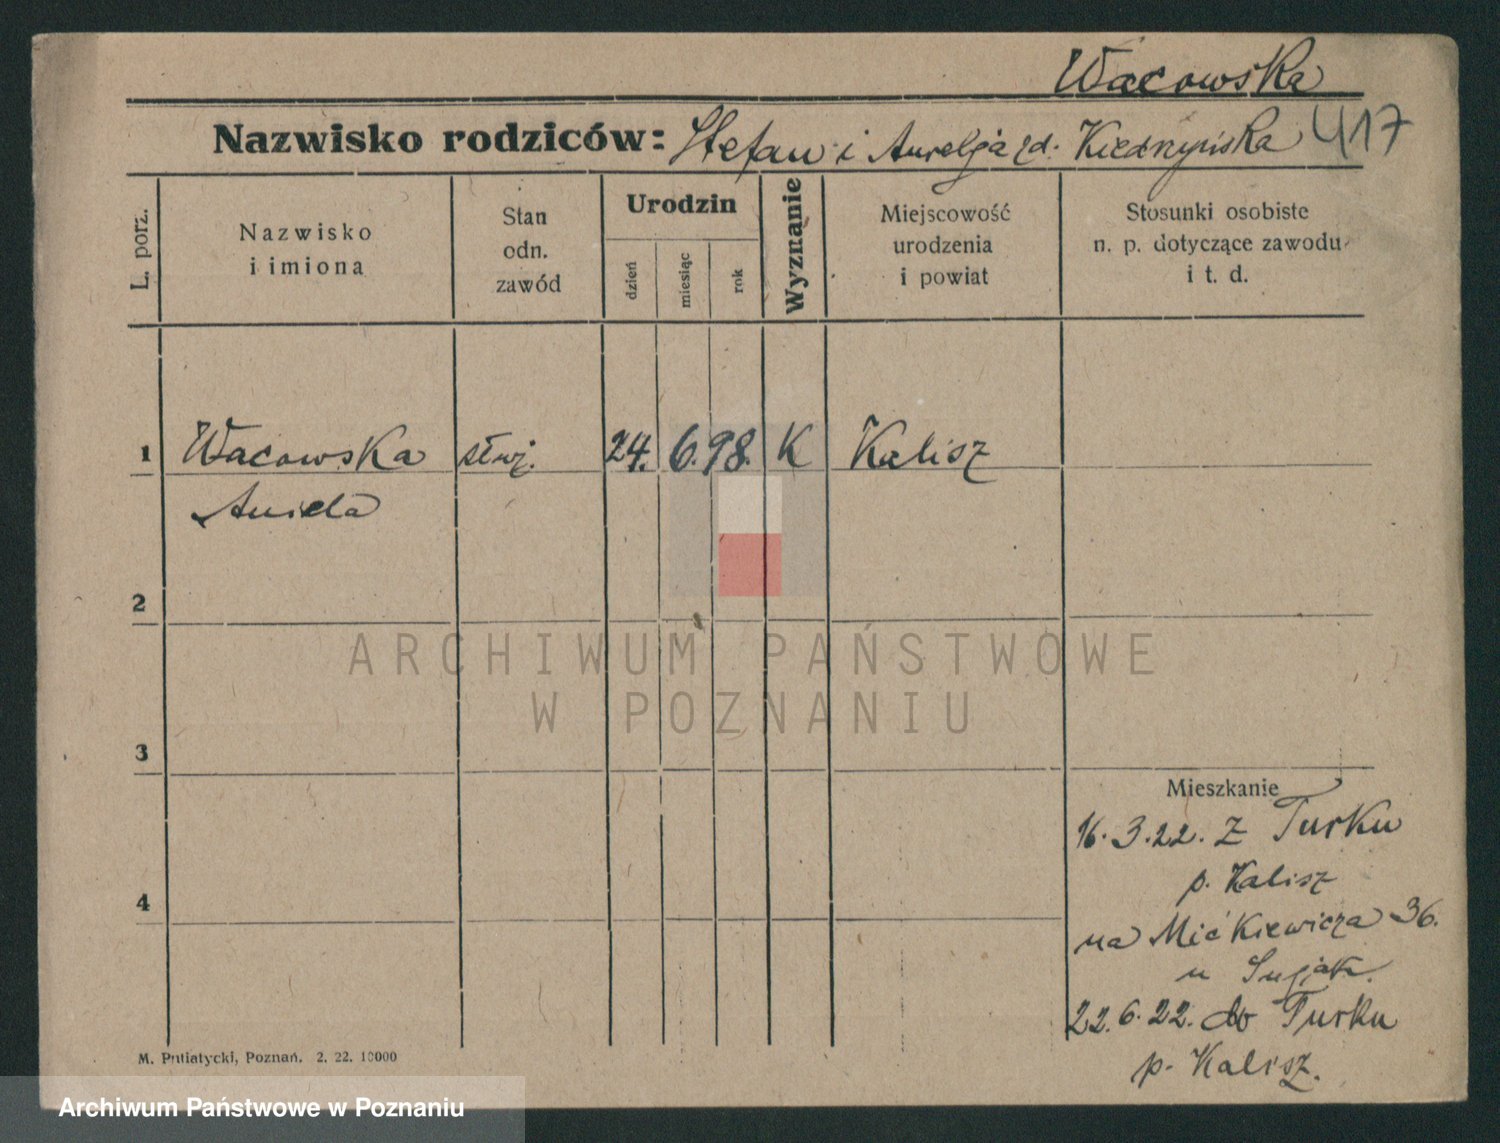 Wacowska
Nazwisko rodziców: Stefan i Aurelja zd. Kiedrzyńska 417
L. porz.
Nazwisko
i imiona
Stan
odn.
zawód
Urodzin
dzień
miesiąc
rok
Wyznanie
Miejscowość
urodzenia
i powiat
Stosunki osobiste
n. p. dotyczące zawodu
i t. d.
1 Wacowska służ. 24. 6. 98. K Kalisz
Aniela
2
3
4
ARCHIWUM PAŃSTWOWE
W POZNANIU
Mieszkanie
16.3.22. z Turku
p. Kalisz
na Mickiewicza 36.
u
22.6.22. do Turku
p. Kalisz.
M. Putiatycki, Poznań. 2. 22. 10000
Archiwum Państwowe w Poznaniu